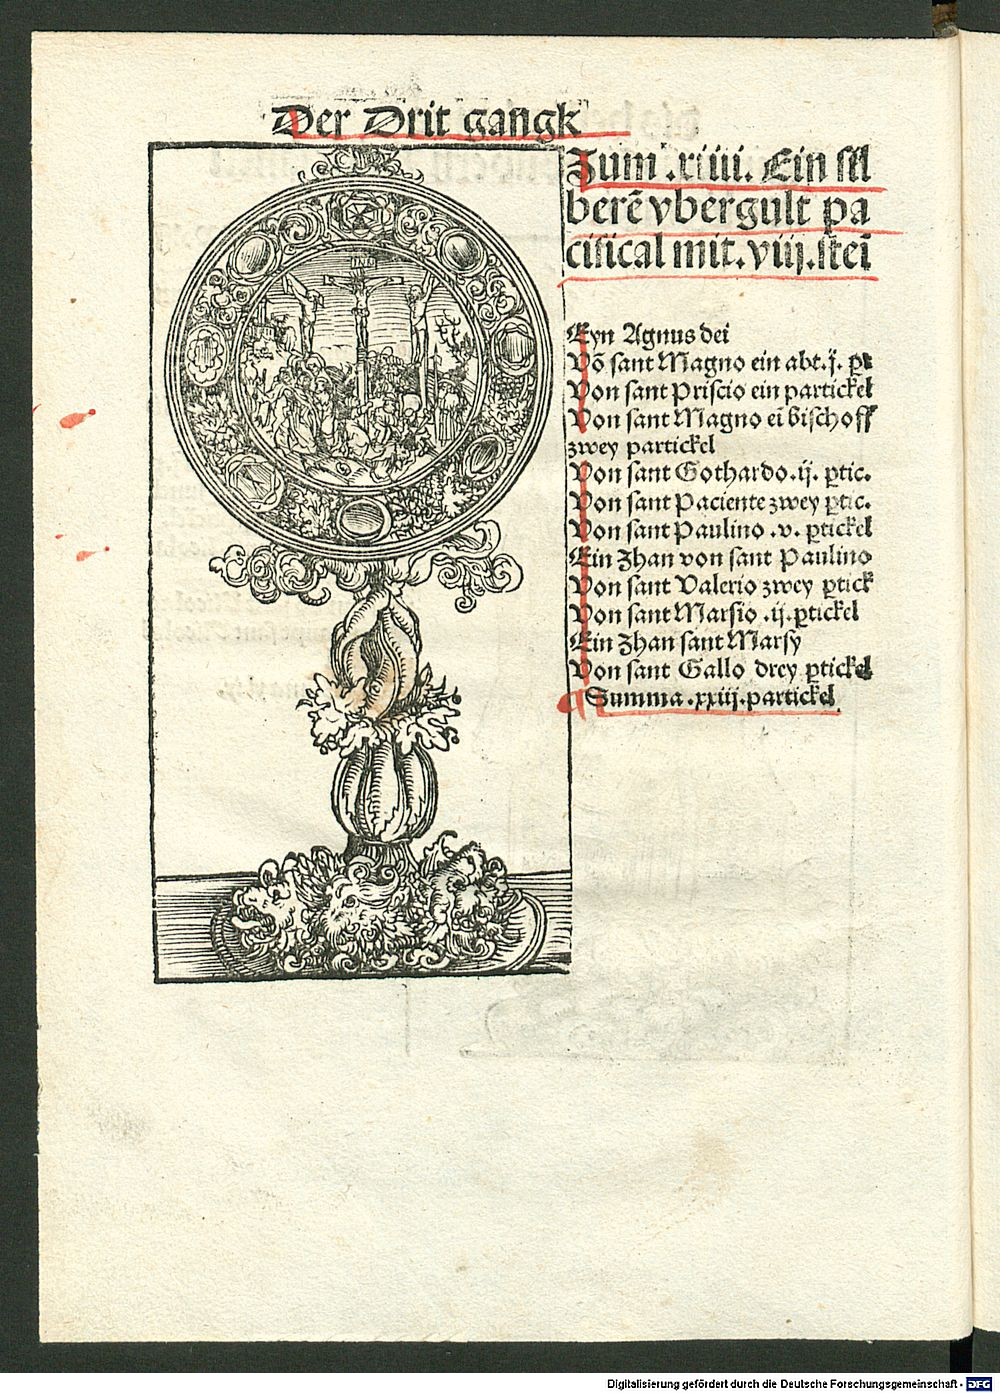 Der Drit gangk
Zum .xiiii. Ein sil
berē vbergult pa
cifical mit .viij. stei
INRI
Eyn Agnus dei
Vō sant Magno ein abt .j. pt
Von sant Priscio ein partickel
Von sant Magno eī bischoff
zwey partickel
Von sant Gothardo .ij. ꝑtic.
Von sant Paciente zwey ꝑtic.
Von sant Paulino .v. ꝑtickel
Ein Zhan von sant Paulino
Von sant Valerio zwey ꝑtick
Von sant Marsio .ij. ꝑtickel
Ein Zhan sant Marsy
Von sant Gallo drey ꝑtickel
Summa .xxiij. partickel
Digitalisierung gefördert durch die Deutsche Forschungsgemeinschaft - DFG